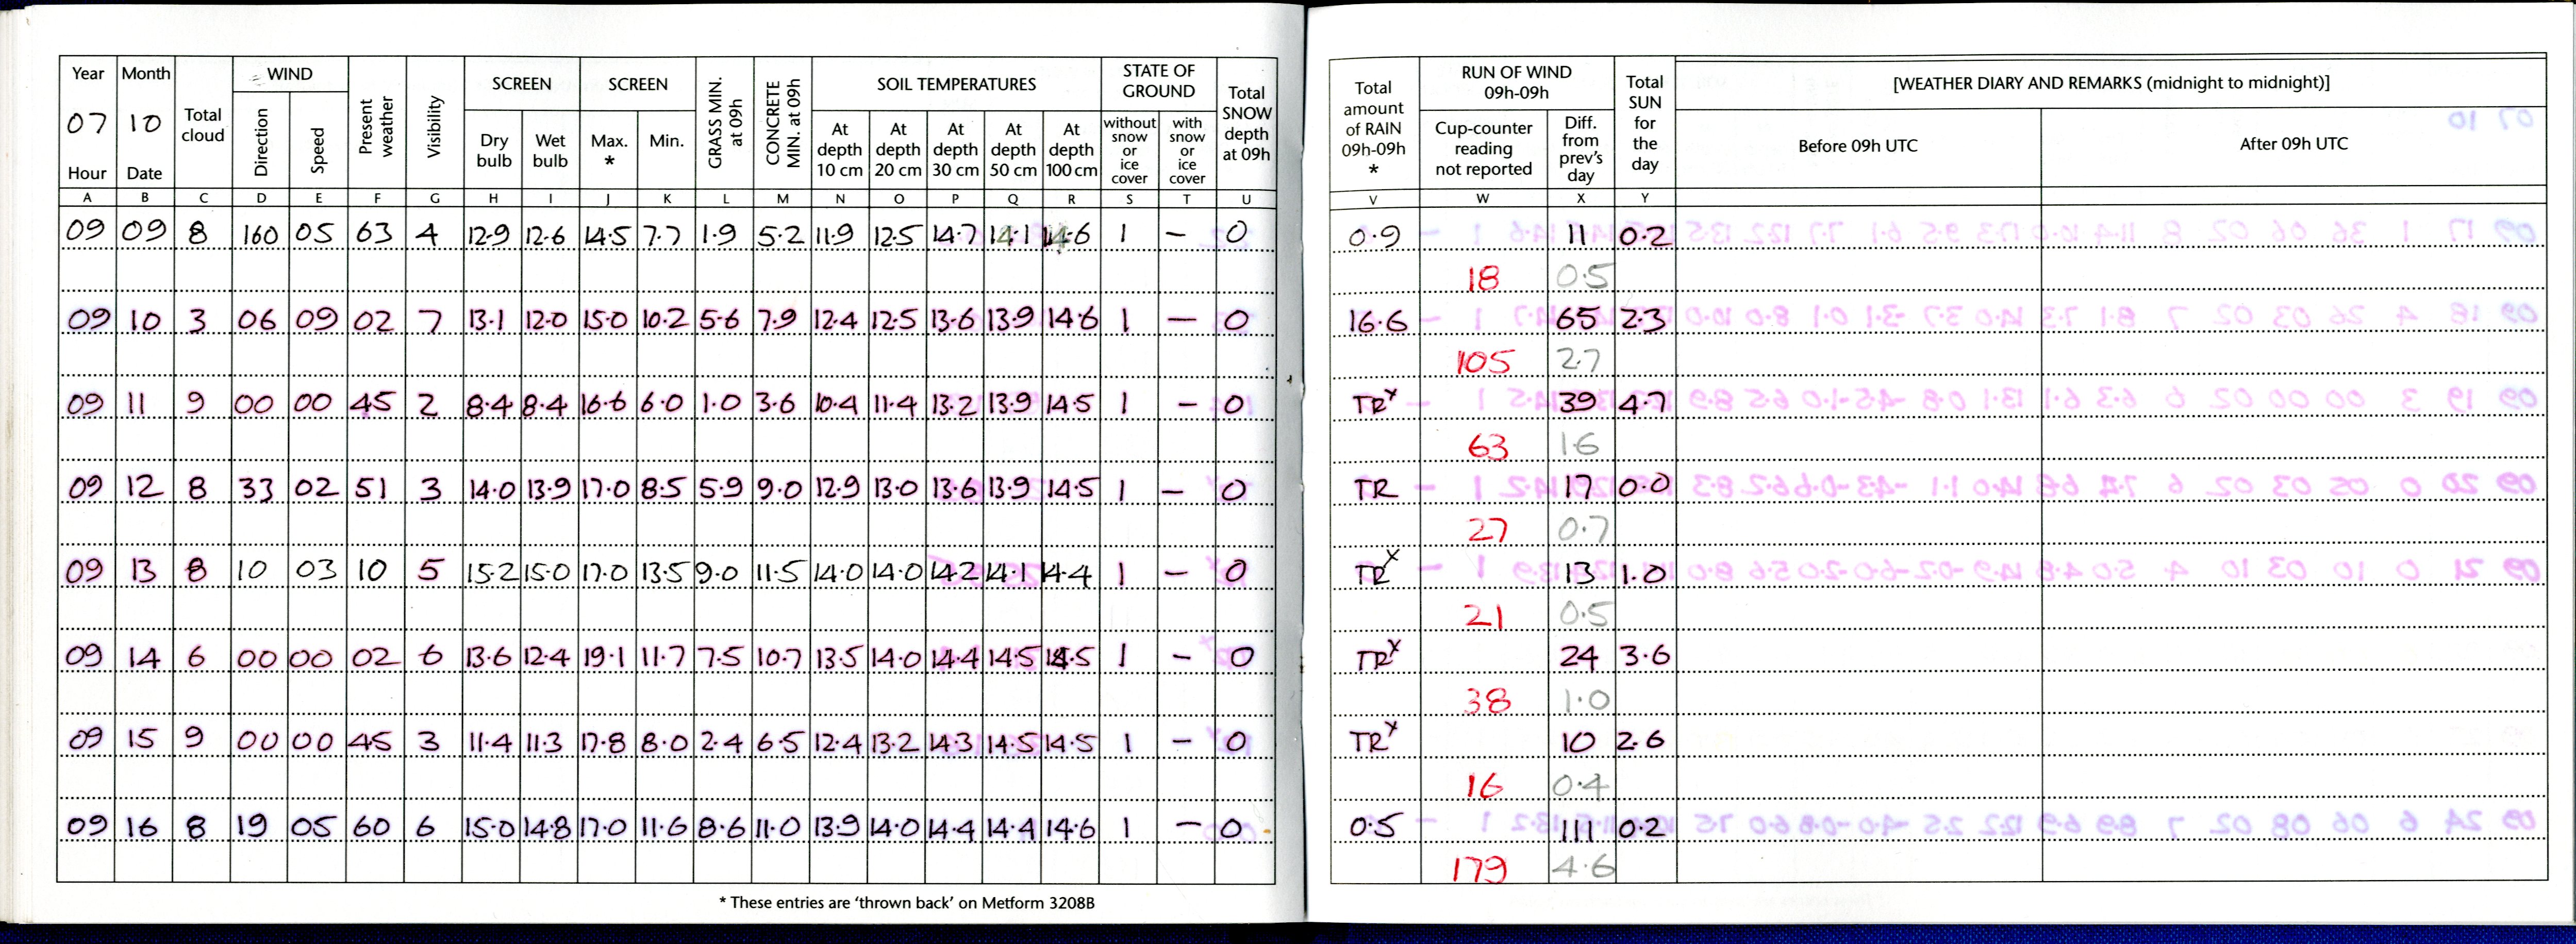 Year Month Total cloud WIND Present weather Visibility SCREEN SCREEN GRASS MIN. at 09h CONCRETE MIN. at 09h SOIL TEMPERATURES STATE OF GROUND Total SNOW depth at 09h
07 10 Direction Speed Dry bulb Wet bulb Max. * Min. At depth 10 cm At depth 20 cm At depth 30 cm At depth 50 cm At depth 100 cm without snow or ice cover with snow or ice cover
Hour Date
A B C D E F G H I J K L M N O P Q R S T U
09 09 8 160 05 63 4 12.9 12.6 14.5 7.7 1.9 5.2 11.9 12.5 14.7 14.1 14.6 1 – 0
09 10 3 06 09 02 7 13.1 12.0 15.0 10.2 5.6 7.9 12.4 12.5 13.6 13.9 14.6 1 – 0
09 11 9 00 00 45 2 8.4 8.4 16.6 6.0 1.0 3.6 10.4 11.4 13.2 13.9 14.5 1 – 0
09 12 8 33 02 51 3 14.0 13.9 17.0 8.5 5.9 9.0 12.9 13.0 13.6 13.9 14.5 1 – 0
09 13 8 10 03 10 5 15.2 15.0 17.0 13.5 9.0 11.5 14.0 14.0 14.2 14.1 14.4 1 – 0
09 14 6 00 00 02 6 13.6 12.4 19.1 11.7 7.5 10.7 13.5 14.0 14.4 14.5 14.5 1 – 0
09 15 9 00 00 45 3 11.4 11.3 17.8 8.0 2.4 6.5 12.4 13.2 14.3 14.5 14.5 1 – 0
09 16 8 19 05 60 6 15.0 14.8 17.0 11.6 8.6 11.0 13.9 14.0 14.4 14.4 14.6 1 – 0
* These entries are 'thrown back' on Metform 3208B
Total amount of RAIN 09h-09h * RUN OF WIND 09h-09h Total SUN for the day [WEATHER DIARY AND REMARKS (midnight to midnight)]
Cup-counter reading not reported Diff. from prev's day Before 09h UTC After 09h UTC
V W X Y
0.9 11 0.2
18 0.5
16.6 65 2.3
105 2.7
TRx 39 4.7
63 1.6
TR 17 0.0
27 0.7
TRx 13 1.0
21 0.5
TRx 24 3.6
38 1.0
TRx 10 2.6
16 0.4
0.5 111 0.2
179 4.6